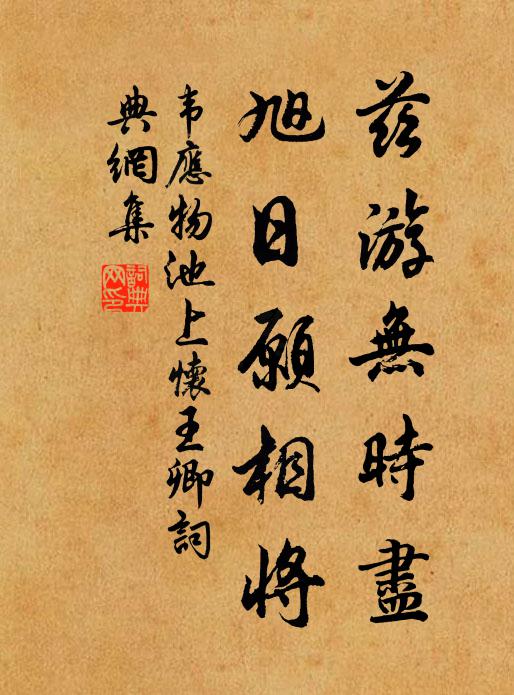 茲游無時盡
旭日願相將
韦應物池上懷王卿詞
典網集
詞典网印